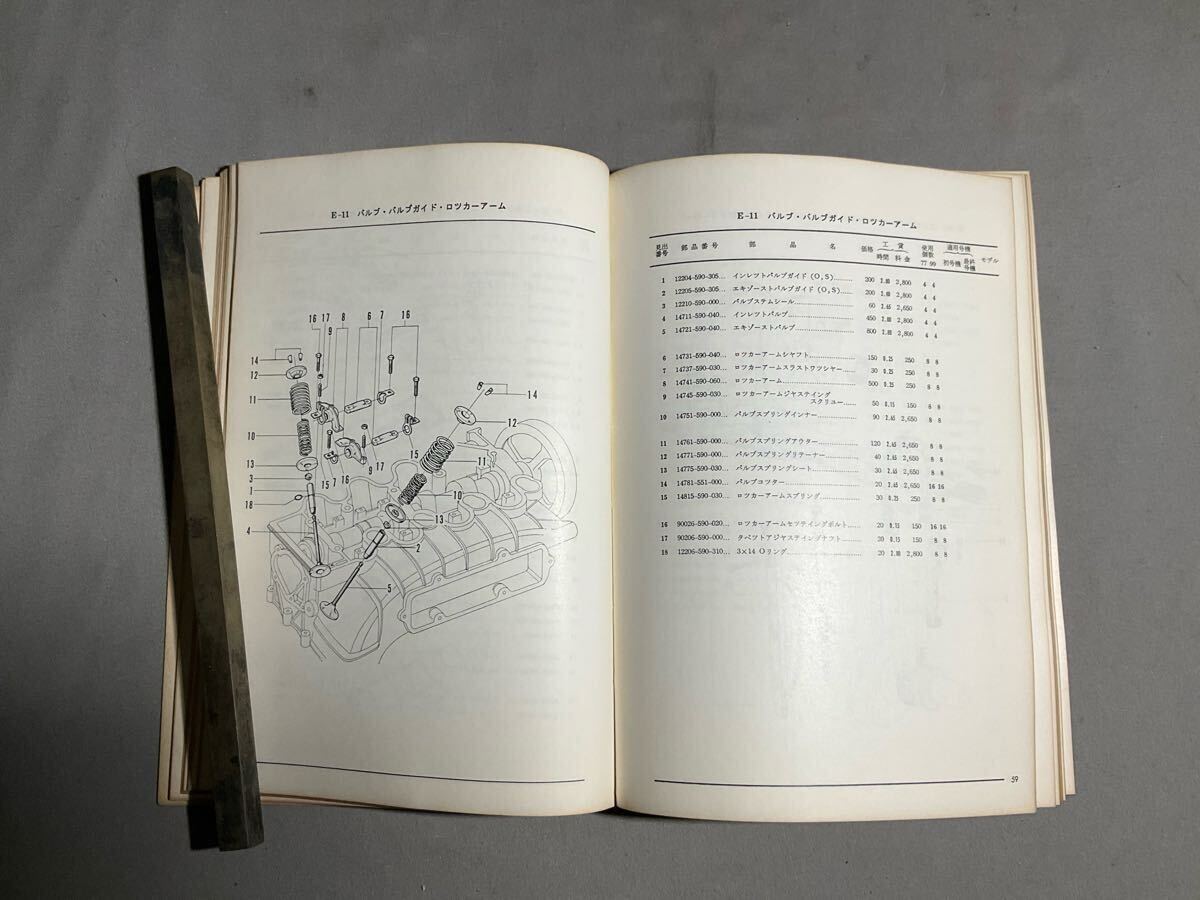 E-11 バルブ・バルブガイド・ロツカーアーム
16 17 8 6 7 16
9
14
12
11
10
13
3
1
18
4
14
12
15
11
9 17
15 7 16
10
13
2
5
E-11 バルブ・バルブガイド・ロツカーアーム
見出番号 部品番号 部品名 価格 工賃 時間 料金 使用個数 77 99 適用号機 初号機 最終号機 モデル
1 12204-590-305… インレツトバルブガイド(O,S)……… 200 2,800 4 4
2 12205-590-305… エキゾーストバルブガイド(O,S)…… 200 2,800 4 4
3 12210-590-000… バルブステムシール……… 60 2.65 2,650 4 4
4 14711-590-040… インレツトバルブ……… 450 2,800 4 4
5 14721-590-040… エキゾーストバルブ……… 800 2,800 4 4
6 14731-590-040… ロツカーアームシヤフト……… 150 0.25 250 8 8
7 14737-590-030… ロツカーアームスラストワツシヤー……… 30 0.25 250 8 8
8 14741-590-060… ロツカーアーム……… 500 0.25 250 8 8
9 14745-590-030… ロツカーアームジヤステイング
スクリユー…… 50 0.15 150 8 8
10 14751-590-000… バルブスプリングインナー……… 90 2.65 2,650 8 8
11 14761-590-000… バルブスプリングアウター……… 120 2.65 2,650 8 8
12 14771-590-000… バルブスプリングリテーナー……… 40 2.65 2,650 8 8
13 14775-590-030… バルブスプリングシート……… 30 2.65 2,650 8 8
14 14781-551-000… バルブコツター……… 20 2.65 2,650 16 16
15 14815-590-030… ロツカーアームスプリング……… 30 0.25 250 8 8
16 90026-590-020… ロツカーアームセツテイングボルト…… 20 0.15 150 16 16
17 90206-590-000… タペツトアジヤステイングナツト…… 20 0.15 150 8 8
18 12206-590-310… 3×14 Oリング……… 20 2,800 8 8
59